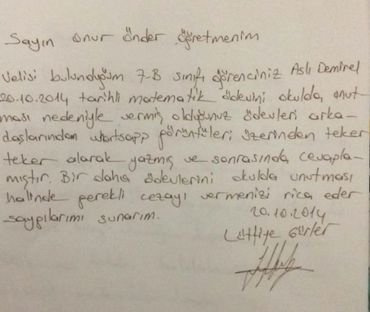 Sayın onur önder öğretmenim
Velisi bulunduğum 7-B sınıfı öğrenciniz Aslı Demirel
20.10.2014 tarihli matematik ödevini okulda unut-
ması nedeniyle vermiş olduğunuz ödevleri arka-
daşlarından whatsapp görüntüleri üzerinden teker
teker alarak yazmış ve sonrasında cevapla-
mıştır. Bir daha ödevlerini okulda unutması
halinde gerekli cezayı vermenizi rica eder
saygılarımı sunarım.
20.10.2014
Lütfiye Gürler